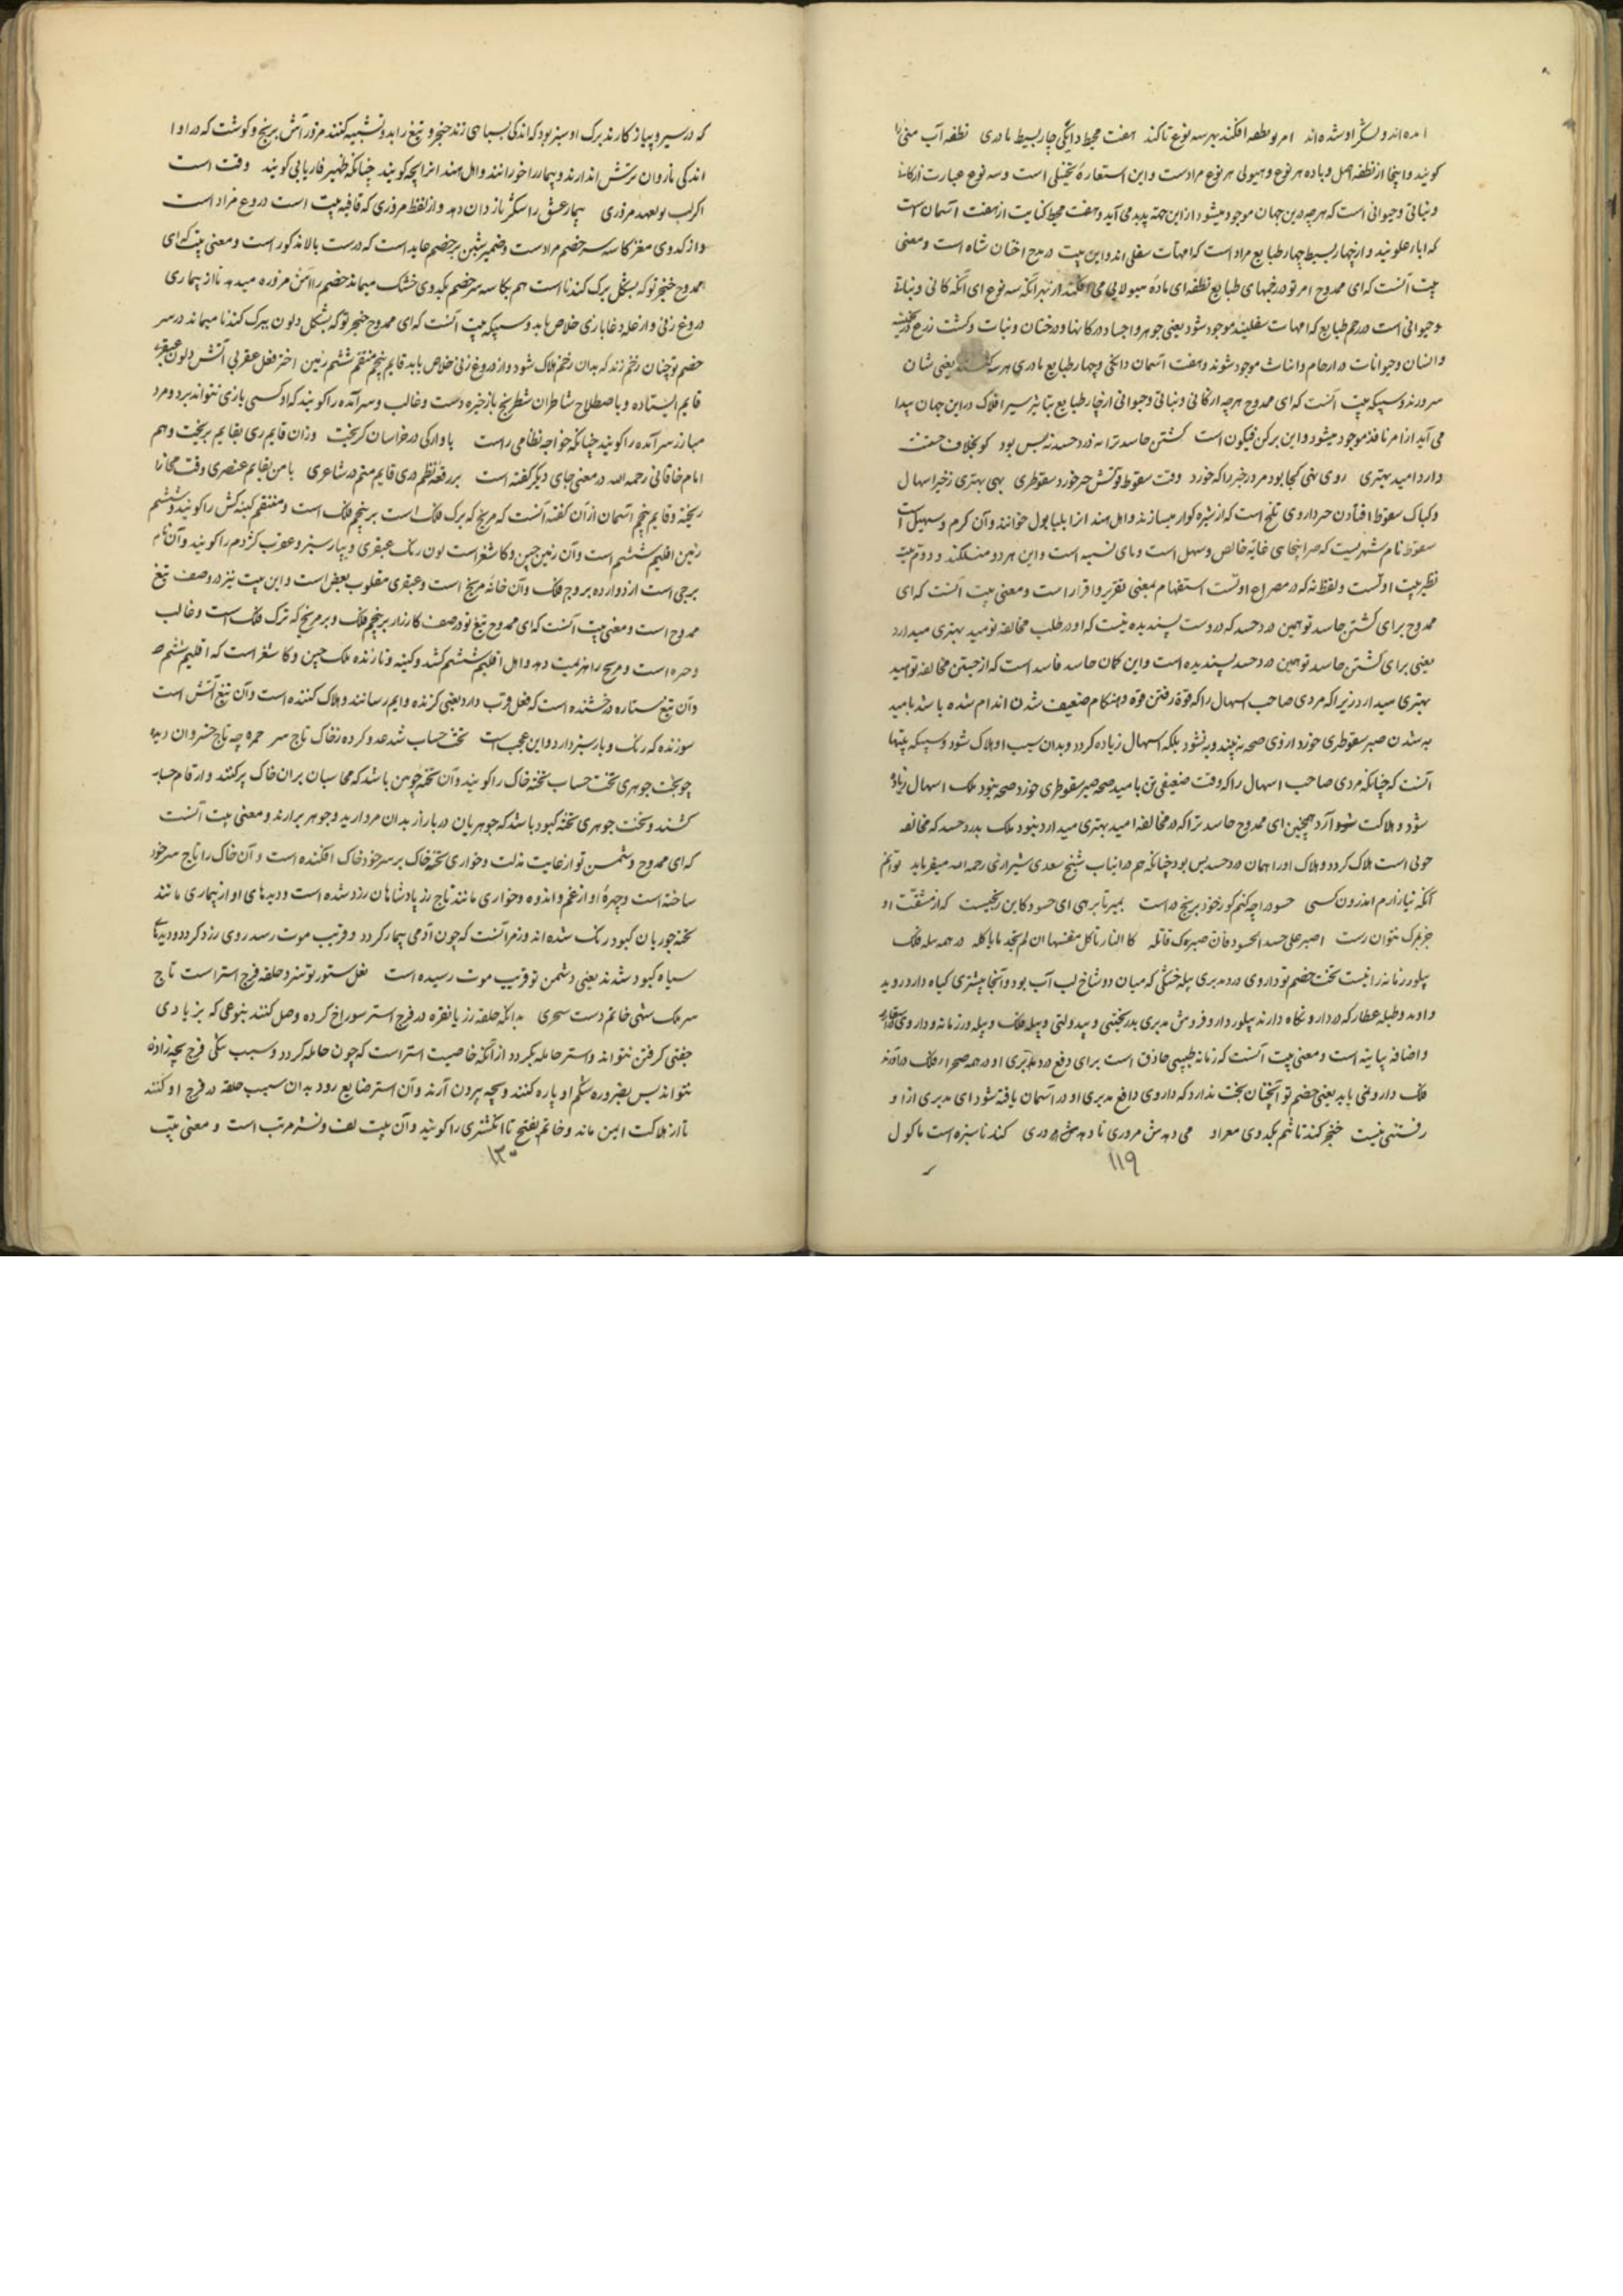 امده اند و لشکر او شده اند امر تو نطفه افکند بهر سه نوع تا کند هفت محیط دایگی چار بسیط مادری نطفه آب منی را
کویند و اینجا از نطفه اصل و ماده هر نوع و هیولی هر نوع مرادست و این استعاره تخییلی است و سه نوع عبارت از کانی
و نباتی و حیوانی است که هرچه درین جهان موجود میشود ازین همه پدید می آید و هفت محیط کنایت از هفت آسمان است
که اباء علویند و از چهار بسیط چهار طبایع مراد است که امهات سفلی اند و این بیت در مدح اختان شاه است و معنی
بیت آنست که ای ممدوح امر تو در رحمهای طبایع نطفه ای ماده هیولایی می افکند از بهر آنکه سه نوع ای آنکه کانی و نباتی
و حیوانی است در رحم طبایع که امهات سفلیند موجود شود یعنی جوهر و اجساد در کانها و درختان و نبات و کشت زرع در
و انسان و حیوانات در ارحام و اناث موجود شوند و هفت آسمان دایکی و چهار طبایع مادری هر سه یعنی شان
سرورند و سپیکه بیت آنست که ای ممدوح هرچه از کانی و نباتی و حیوانی از چار طبایع بتاثیر سیر افلاک در این جهان پیدا
می آید از امر نافذ موجود میشود و این بر کن فیکون است کشتن حاسد ترا نه درد حسد نه بس بود کو بخلاف جستنت
دارد امید بهتری روی بهی کجا بود مرد زحیر را که خورد وقت سقوط قوتش صبر خورد سقوطری بهی بهتری زحیر اسهال
و سقوط افتادن صبر داروی تلخ است که از شیره کوار میسازند و اهل هند انرا ایلیا بول خوانند و آن کرم و سهیل است
سقوط نام شهریست که صبر اینجای غایة خالص و سهل است و یای نسبه است و این هر دو و دوم بیت
نظیر بیت اولست و لفظ نه که در مصراع اولست استفهام بمعنی تقریر و اقرار است و معنی بیت آنست که ای
ممدوح برای کشتن حاسد تو همین درد حسد که دروست پسندیده نیست که او در طلب مخالفه تو میبد بهتری میدارد
یعنی برای کشتن حاسد تو همین درد حسد پسندیده است و این کمان حاسد فاسد است که از جستن مخالفه تو امید
بهتری میدارد زیرا که مردی صاحب اسهال را که قوة رفتن قوه و هنکام ضعیف شدن اندام شده باشد بامید
به شدن صبر سقوطری خورد او روی صحه نه بیند و به نشود بلکه اسهال زیاده کردد و بدان سبب او هلاک شود و سپیکه بیتها
آنست که چنانکه مردی صاحب اسهال را که وقت ضعیفی تن بامید صحه صبر سقوطری خورد صحه نبود بلک اسهال زیاده
شود و هلاکت شود آرد همچنین ای ممدوح حاسد ترا که در مخالفه امید بهتری میدارد نبود بلک بدرد حسد که مخالفه
جوئی است هلاک کردد و هلاک او را همان درد حسد بس بود چنانکه هم درانباب شیخ سعدی شیرازی رحمه الله میفرماید توانم
آنکه نیازارم اندرون کسی حسود را چه کنم کو ز خود برنج در است بمیر تا برهی ای حسود کاین رنجیست که از مشقت او
جز بمرک نتوان رست اصبر علی حسد الحسود فان صبرک قاتله کالنار تاکل نفسها ان لم تجد ما یاکله در همه پیله فلک
پیلور زمانه را نیست تخت خصم تو داروی درد مدبری پیله خشکی که میان دو شاخ لب آب بود و آنجا بیشتری کیاه دارد روید
واوند و طبله عطار که در دارو نکاه دارند پیلور دارو فروش مدبری بدبختی و بیدولتی و پیله فلک و پیله ور زمانه و داروی
و اضافه بیانیه است و معنی بیت آنست که زمانه طبیبی حاذق است برای دفع درد مدبری او در همه صحرا فلک
فلک دارو نمی یابد یعنی خصم تو آنچنان بخت ندارد که داروی دافع مدبری او در آسمان یافته شود ای مدبری از او
رفتنی نیست خنجر کندنا شم بکدوی معزاد می دهدش مزوری تا دهدش مزوری کندنا سبزه است ماکول
۱۱۹
که در سیر و پیاز کارند برک او سبز بود که اندکی بسیاهی زند خنجر و تیغ را بدو تشبیه کنند مزور آش برنج و کوشت که در او
اندکی نار و ان ترشش اندازند و بیمار را خورانند و اهل هند انرا ایجه کویند چنانکه ظهیر فاریابی کوید وقت است
اکر لب تو بعهد مزوری بیمار عشق را شکر و ناردان دهد و از لفظ مزوری که قافیه بیت است دروغ مراد است
و از کدوی مغز کاسه سر خصم مرادست و ضمیر شین بر خصم عاید است که در بیت بالا مذکور است و معنی بیت که ای
ممدوح خنجر تو که بشکل برک کندنا است هم بکاسه سر خصم بکدوی خشک میماند خصم را آش مزوره میدهد تا از بیماری
دروغ زنی و از غل و دغابازی خلاص یابد و سپیکه بیت آنست که ای ممدوح خنجر تو که بشکل و لون ببرک کندنا میماند در سر
خصم تو چنان زخم زند که بدان زخم هلاک شود و از دروغ زنی خلاص یابد قایم پنجم منتقم ششم زمین اختر فعل عقربی آتش و لون عبقری
قایم ایستاده و باصطلاح شاطران شطرنج باز خیره دست و غالب و سرآمده را کویند که او کسی بازی نتواند برد و مرد
مبارز سرآمده را کویند چنانکه خواجه نظامی راست باوارکی در خراسان کریخت وزان قایم ری بقایم بریخت و هم
امام خاقانی رحمه الله در معنی جای دیکر کفته است بر رقعه نظم دری قایم منم در شاعری با من بقایم عنصری وقت مجارا
ریخته و قایم پنجم آسمان از آن کفته آنست که مریخ که ترک فلک است بر پنجم فلک است و منتقم کینه کش را کویند و ششم
زمین اقلیم ششم است و آن زمین چین و کاشغر است لون رنک عبقری دیبار سبز و عقرب کژدم را کویند و آن نام
برجی است از دوازده بروج فلک و آن خانه مریخ است و عبقری مقلوب بعض است و این بیت نیز در وصف تیغ
ممدوح است و معنی بیت آنست که ای ممدوح تیغ تو در صف کارزار بر پنجم فلک و بر مریخ که ترک فلک است و غالب
و است و مریخ را هزیمت دهد و اهل اقلیم ششم کشد و کینه و تازنده ملک چین و کاشغر است که اقلیم ششم
و آن تیغ ستاره درخشنده است که فعل عقرب دارد یعنی کزنده و ایم رسانند و هلاک کننده است و آن تیغ آتش است
سوزنده که رنک دیبار سبز دارد و این عجب است تخت حساب شد عدو کرده ز خاک تاج سر چهره چه تاج خسروان دیده
چو تخت جوهری تخت حساب تخته خاک را کویند و آن تخته چوبین باشد که محاسبان بران خاک پر کنند و ارقام حساب
کشند و تخت جوهری تخته کبود باشد که جوهریان دربار از بدان مروارید و جوهر برارند و معنی بیت آنست
که ای ممدوح دشمن تو از غایت مذلت و خواری تخته خاک بر سر خود خاک افکنده است و آن خاک را تاج سر خود
ساخته است و چهرۀ او از غم و اندوه و خواری مانند تاج زر پادشاهان زرد شده است و دیدهای او از بیماری مانند
تخته جوهریان کبود رنک شده اند و زمر آنست که چون آدمی بیمار کردد و قریب موت رسد روی زرد کردد و دیدهای
سیاه کبود شدند یعنی دشمن تو قریب موت رسیده است نعل ستور تو سزد حلقه فرج استر است تاج
سر ملک سنی خاتم دست سحری بدانکه حلقه زر یا نقره در فرج استر سوراخ کرده وصل کنند بنوعی که نر بادی
جفتی کرفتن نتواند و استر حامله نکردد از آنکه خاصیت استر است که چون حامله کردد و سبب تنکی فرج بچه زادن
نتواند پس بضرورت شکم او پاره کنند و بچه بیرون آرند و آن استر ضایع رود بدان سبب حلقه در فرج او کنند
تا از هلاکت ایمن ماند و خاتم بفتح تا انکشتری را کویند و آن بیت لف و نشر مرتب است و معنی بیت
۱۳۰